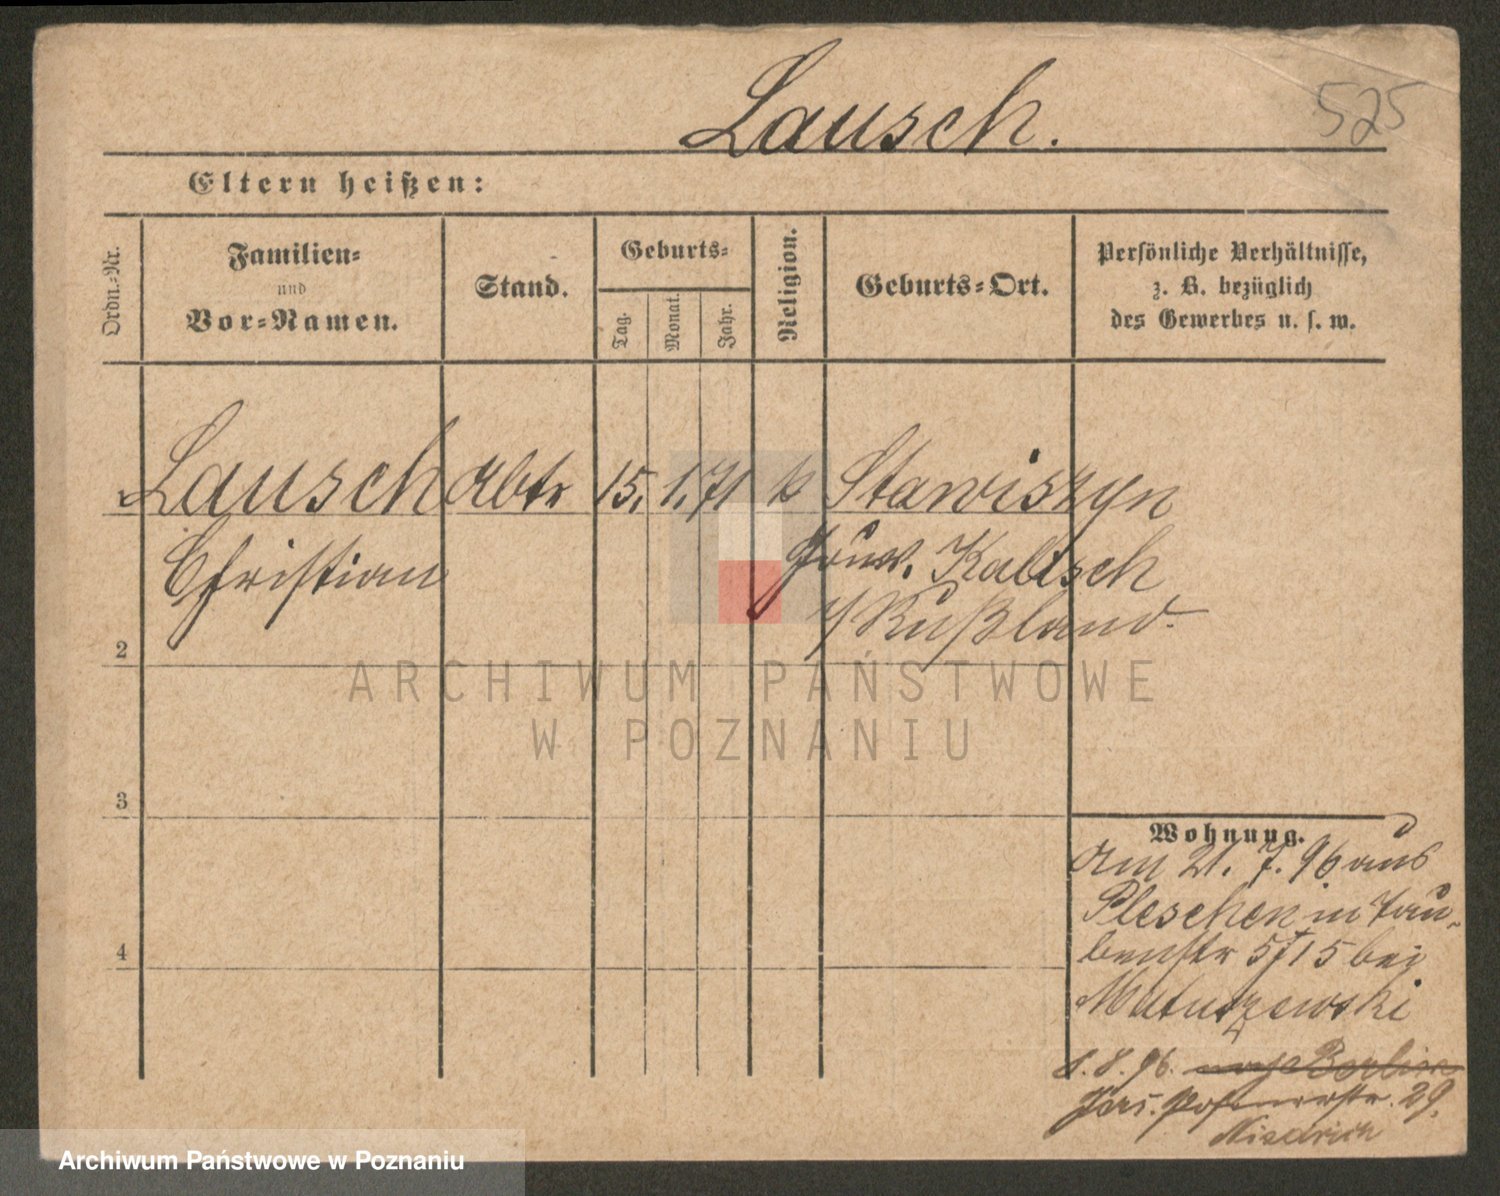 Lausch.
525
Eltern heißen:
Ordn.-Nr.
Familien-
und
Vor-Namen.
Stand.
Geburts-
Tag.
Monat.
Jahr.
Religion.
Geburts-Ort.
Persönliche Verhältnisse,
z. B. bezüglich
des Gewerbes u. s. w.
Lausch Arbtr 15. 1. 71 k Stawiszyn
Christian Gouv. Kalisch
i/Rußland.
2
3
4
Wohnung.
Am 21. 7. 96 aus
Pleschen in Tau-
benstr 5 / 15 bei
Matuszewski
8. 96. nach Berlin
29.
ARCHIWUM PAŃSTWOWE
W POZNANIU
Archiwum Państwowe w Poznaniu